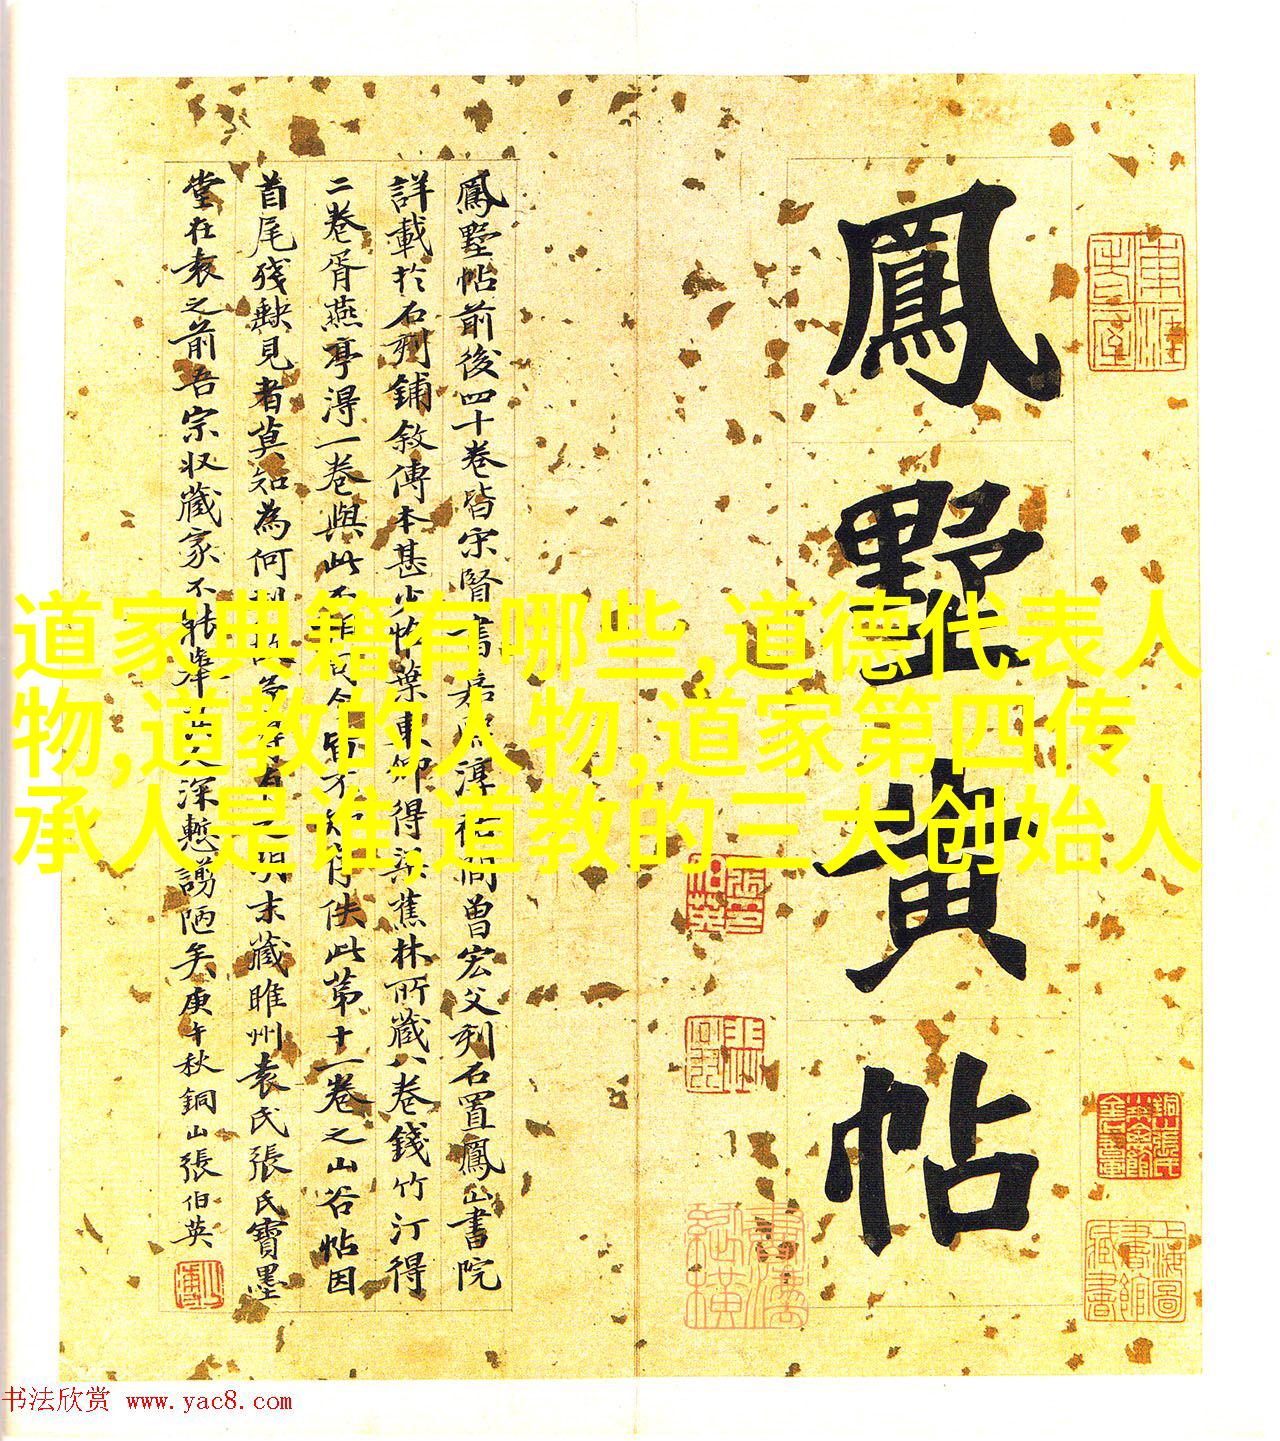 鳳墅黄帖
鳳墅帖前後四十卷皆宋賢書嘉熙淳祐間曾宏父刻石置鳳山書院
詳載於石刻鋪敘傳本甚少帖葉東卿得梁蕉林所藏八卷錢竹汀得
二卷胥燕亭得一卷與此不知佚此第十一卷之山谷帖因
首尾殘缺見者莫知為何明末藏睢州袁氏張氏寶墨
堂在袁之前吾宗收藏家不能舉深慙謭陋矣庚午秋銅山張伯英
道家典籍有哪些,道德代表人
物,道教的人物,道家第四传
承人是谁,道教的三大创始人
上海圖
書館
藏書
书法欣赏 www.yac8.com